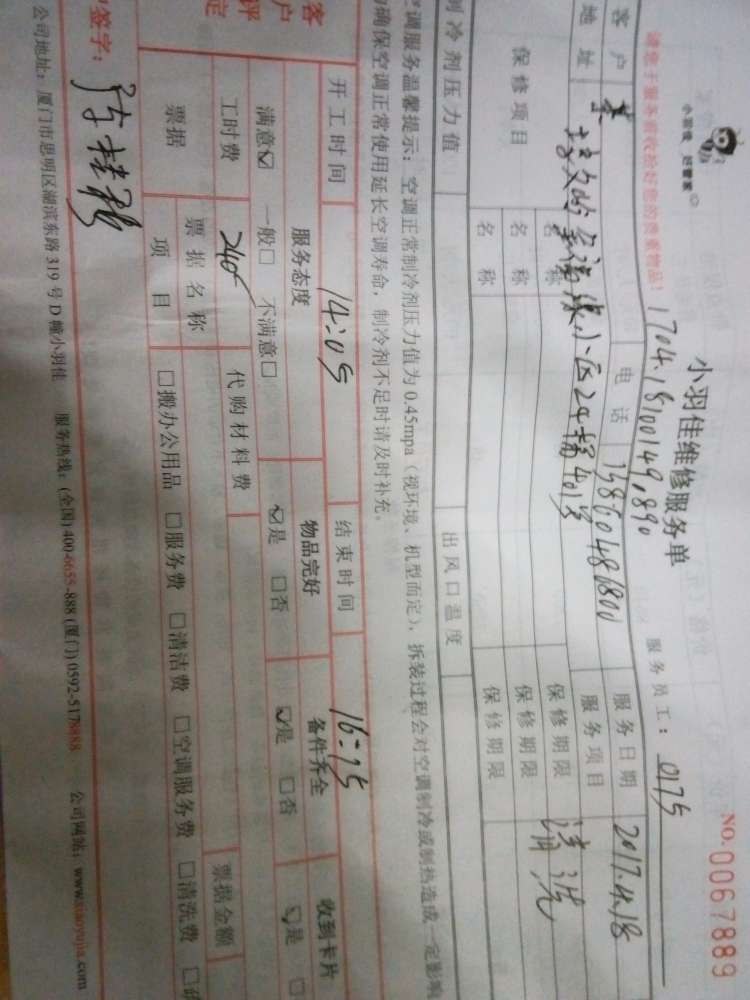 小羽佳 好管家
小羽佳维修服务单
NO.0067889
请您于服务前收拾好您的贵重物品!
1704.18100149.890
服务员工: 0175
客户
电话 13860486800
服务日期 2017.4.18
地址
小区24幢401号
服务项目 清洗
保修项目
名称
保修期限
名称
保修期限
名称
保修期限
制冷剂压力值
出风口温度
空调服务温馨提示:空调正常制冷剂压力值为0.45mpa(视环境、机型而定),拆装过程会对空调制冷或制热造成一定影响
确保空调正常使用延长空调寿命,制冷剂不足时请及时补充。
开工时间 14:05
结束时间 16:15
客户评定
服务态度
物品完好
备件齐全
收到卡片
满意☑ 一般□ 不满意□
☑是 □否
☑是 □否
☑是 □
工时费 240
代购材料费
票据金额
票据
票据名称
项目
□搬办公用品 □服务费 □清洁费 □空调服务费 □清洗费
签字:
公司地址:厦门市思明区湖滨东路319号D幢小羽佳 服务热线:(全国)400-6655-888(厦门)0592-5178888 公司网站:www.xiaoyujia.com